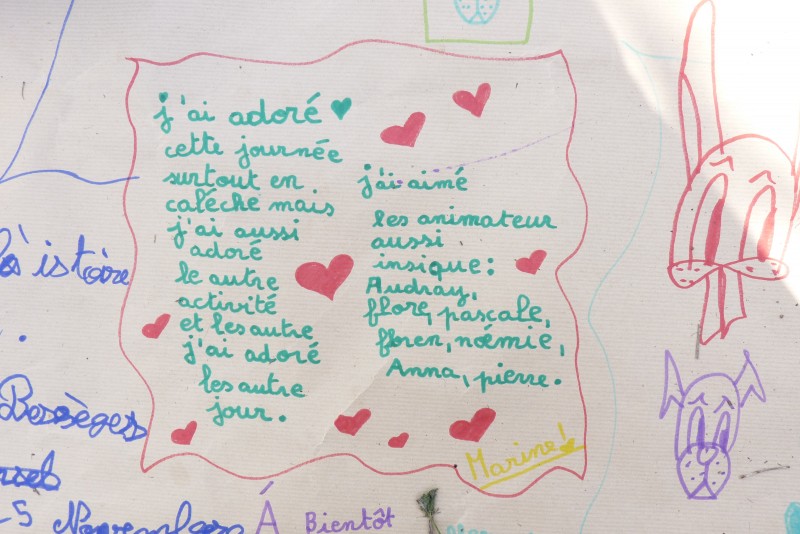 j'ai adoré
cette journée
surtout en
caléche mais
j'ai aussi
adoré
le autre
activité
et les autre
j'ai adoré
les autre
jour.
j'ai aimé
les animateur
aussi
insique:
Audray,
flore, pascale,
floren, noémie,
Anna, pierre.
Marine!
l'istoire
Bessèges
5 Novembre
À Bientôt